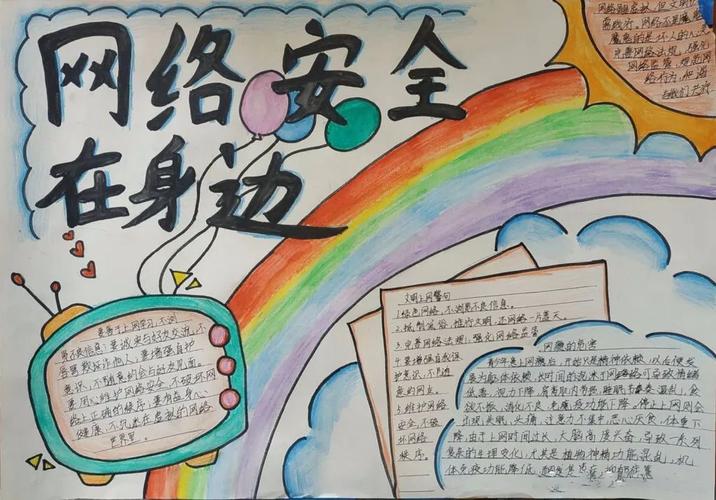 网络安全
在身边
网络虽虚拟,但文明
需践行。网络不是魔鬼,
魔鬼的是坏人的人.
完善网络法规,强化
网络监管,规范网
络行为,
善于上网学习,不浏
览不良信息;要诚实与好友交流,不
各辱欺诈他人;要增强自护
意识,不随意约会的好友见面。
要用心维护网络安全,不破坏网
络上正确的秩序;要有益身心
健康,不沉迷在虚拟的网络
世界里。
文明上网警句
1.绿色网络,不浏览不良信息。
2.抵制低俗,推行文明,还网络一片蓝天。
3.完善网络法规,强化网络监管
4.要增强自我保
护意识,不随意
约网友。
5.维护网络
安全,不破
坏网络
秩序。
网瘾的危害
青少年患上网瘾后,开始只是精神依赖,以后便发
展为躯体依赖,长时间的沉迷于网络可导致情绪
低落、视力下降、肩背肌肉劳损、睡眠节奏紊乱、食
欲不振、消化不良、免疫功能下降。停止上网则会
出现失眠、头痛、注意力不集中、恶心厌食、体重下
降。由于上网时间过长,大脑高度兴奋,导致一系列
复杂的生理变化,尤其是植物神经功能紊乱,机
体免疫功能降低